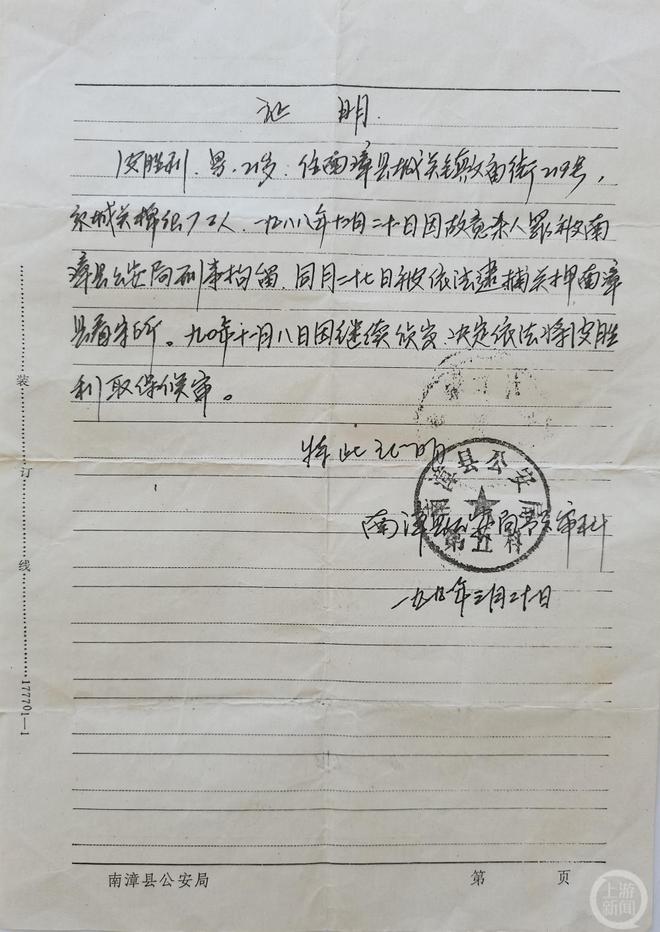 证 明
皮胜利，男，21岁，住南漳县城关镇文庙街219号，
城关棉织厂工人，一九八八年十二月二十日因故意杀人罪被南
漳县公安局刑事拘留，同月二十七日被依法逮捕关押南漳
县看守所。九〇年十一月八日因继续侦查，决定依法将皮胜
利取保候审。
特此证明
南漳县公安局预审科
南漳县公安局
第五科
月二十一日
装
订
线
177701—1
南漳县公安局 第 页
上游
新闻